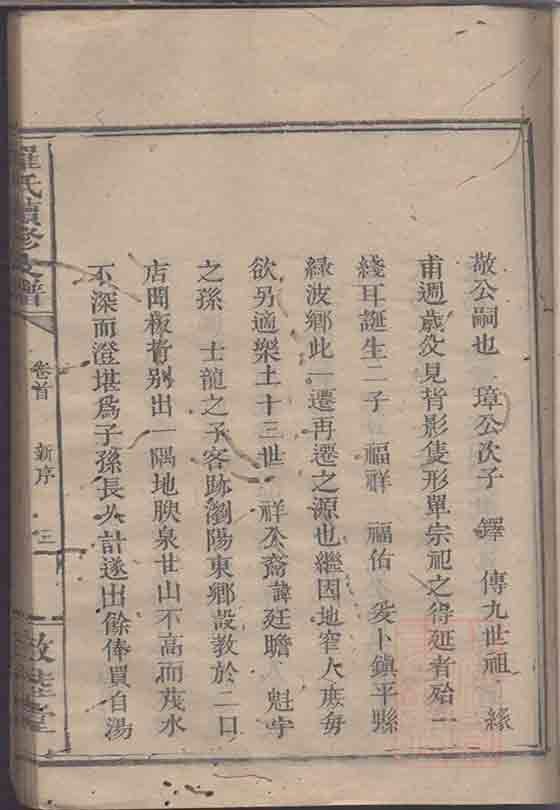 敬公嗣也 璋公次子 鐸 傳九世祖 緣
甫週歲父見背影隻形單宗祀之得延者殆一
綫耳誕生二子 福祥 福佑 爰卜鎮平縣
綠波鄉此一遷再遷之源也繼因地窄人庶每
欲另適樂土十三世 祥公裔諱廷瞻 魁宇
之孫 士龍之子客跡瀏陽東鄉設教於二口
店聞板背别出一隅地腴泉甘山不高而茂水
不深而澄堪爲子孫長久計遂出餘俸買自湯
羅氏續修支譜
卷首 新序 三
敦睦堂